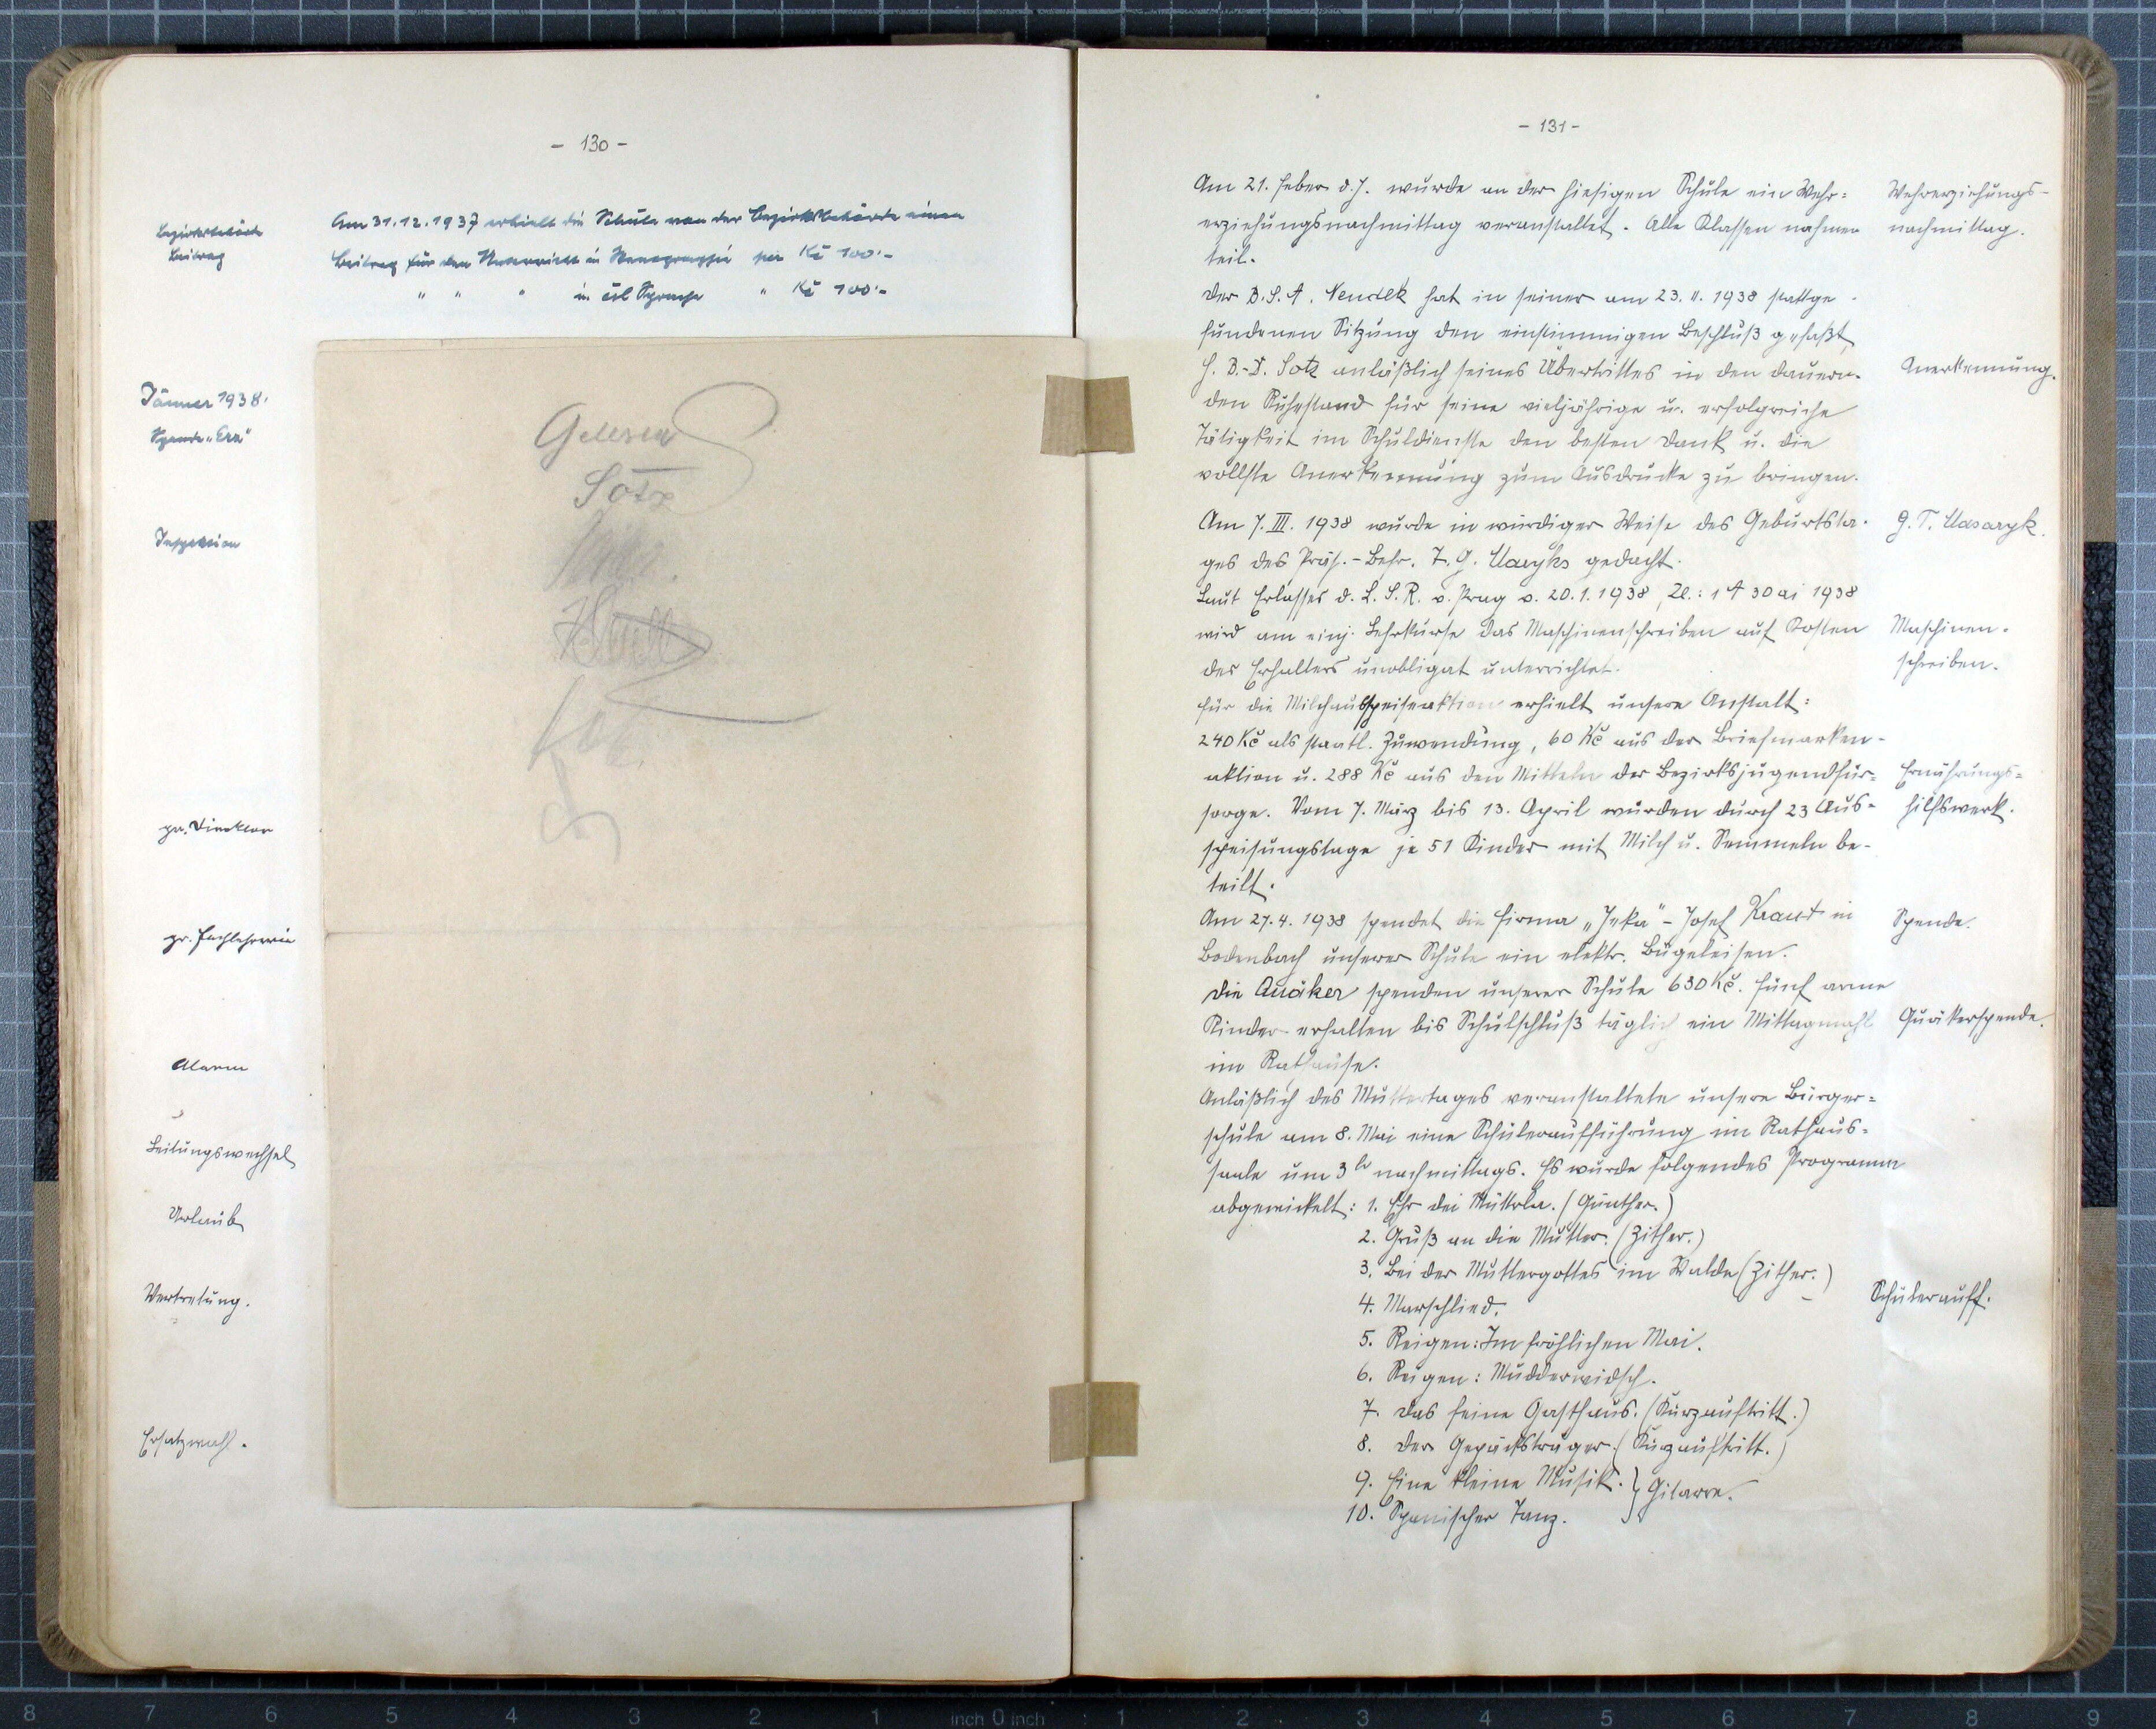 - 130 -
Bezirksbehörde
Beitrag
Am 31.12.1937 erhielt die Schule von der Bezirksbehörde einen
Beitrag für den Unterricht in Stenographie per Kč 100.-
" " " in čsl Sprache " Kč 100.-
Jänner 1938.
Spende
Inspektion
pr. Direktor
pr. Fachlehrerin
Alarm
Leitungswechsel
Urlaub
Vertretung.
Ersatzwahl.
Gelesen
Sotz
- 131 -
Am 21. Feber d. J. wurde an der hiesigen Schule ein Wehr=
erziehungsnachmittag veranstaltet. Alle Klassen nahmen
teil.
Wehrerziehungs-
nachmittag.
Der B.S.A. Neudek hat in seiner am 23. II. 1938 stattge-
fundenen Sitzung den einstimmigen Beschluß gefaßt,
H. B.-D. Sotz anläßlich seines Übertrittes in den dauern-
den Ruhestand für seine vieljährige u. erfolgreiche
Tätigkeit im Schuldienste den besten Dank u. die
vollste Anerkennung zum Ausdrucke zu bringen.
Anerkennung.
Am 7. III. 1938 wurde in würdiger Weise des Geburtsta-
ges des Präs.-Befr. T. G. Maryks gedacht.
G. T. Masaryk.
Laut Erlasses d. L. S. R. v. Prag v. 20.1.1938, Zl.: 1 A 30 ai 1938
wird am einj. Lehrkurse das Maschinenschreiben auf Kosten
des Erhalters unobligat unterrichtet.
Maschinen-
schreiben.
Für die Milchausspeiseaktion erhielt unsere Anstalt:
240 Kč als staatl. Zuwendung, 60 Kč aus der Briefmarken-
aktion u. 288 Kč aus den Mitteln der Bezirksjugendfür=
sorge. Vom 7. März bis 13. April wurden durch 23 Aus=
speisungstage je 51 Kinder mit Milch u. Semmeln be-
teilt.
Ernährungs=
hilfswerk.
Am 27.4.1938 spendet die Firma „Jeka" - Josef Kraut in
Bodenbach unserer Schule ein elektr. Bügeleisen.
Spende.
Die Quäker spenden unserer Schule 630 Kč. Fünf arme
Kinder erhalten bis Schulschluß täglich ein Mittagmahl
im Rathause.
Quäkerspende.
Anläßlich des Muttertages veranstaltete unsere Bürger=
schule am 8. Mai eine Schüleraufführung im Rathaus=
saale um 3h nachmittags. Es wurde folgendes Programm
abgewickelt: 1. Ehr dei Mütterla. (Günther.)
2. Gruß an die Mutter. (Zither.)
3. Bei der Muttergottes im Walde (Zither.)
4. Marschlied.
Schülerauff.
5. Reigen: Im fröhlichen Mai.
6. Reigen: Mudderwidsch.
7. Das feine Gasthaus. (Kurzauftritt.)
8. Der Gepäcksträger. (Kurzauftritt.)
9. Eine kleine Musik. } Gitarre.
10. Spanischer Tanz.